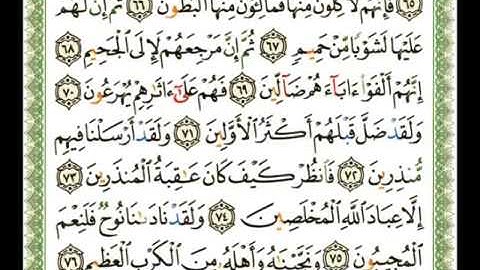 ٦٥ فَإِنَّهُمْ لَآكِلُونَ مِنْهَا فَمَالِـُٔونَ مِنْهَا ٱلْبُطُونَ ٦٦ ثُمَّ إِنَّ لَهُمْ
عَلَيْهَا لَشَوْبًا مِّنْ حَمِيمٍ ٦٧ ثُمَّ إِنَّ مَرْجِعَهُمْ لَإِلَى ٱلْجَحِيمِ ٦٨
إِنَّهُمْ أَلْفَوْا۟ ءَابَآءَهُمْ ضَآلِّينَ ٦٩ فَهُمْ عَلَىٰٓ ءَاثَٰرِهِمْ يُهْرَعُونَ ٧٠
وَلَقَدْ ضَلَّ قَبْلَهُمْ أَكْثَرُ ٱلْأَوَّلِينَ ٧١ وَلَقَدْ أَرْسَلْنَا فِيهِم
مُّنذِرِينَ ٧٢ فَٱنظُرْ كَيْفَ كَانَ عَٰقِبَةُ ٱلْمُنذَرِينَ ٧٣
إِلَّا عِبَادَ ٱللَّهِ ٱلْمُخْلَصِينَ ٧٤ وَلَقَدْ نَادَىٰنَا نُوحٌ فَلَنِعْمَ
ٱلْمُجِيبُونَ ٧٥ وَنَجَّيْنَٰهُ وَأَهْلَهُۥ مِنَ ٱلْكَرْبِ ٱلْعَظِيمِ ٧٦